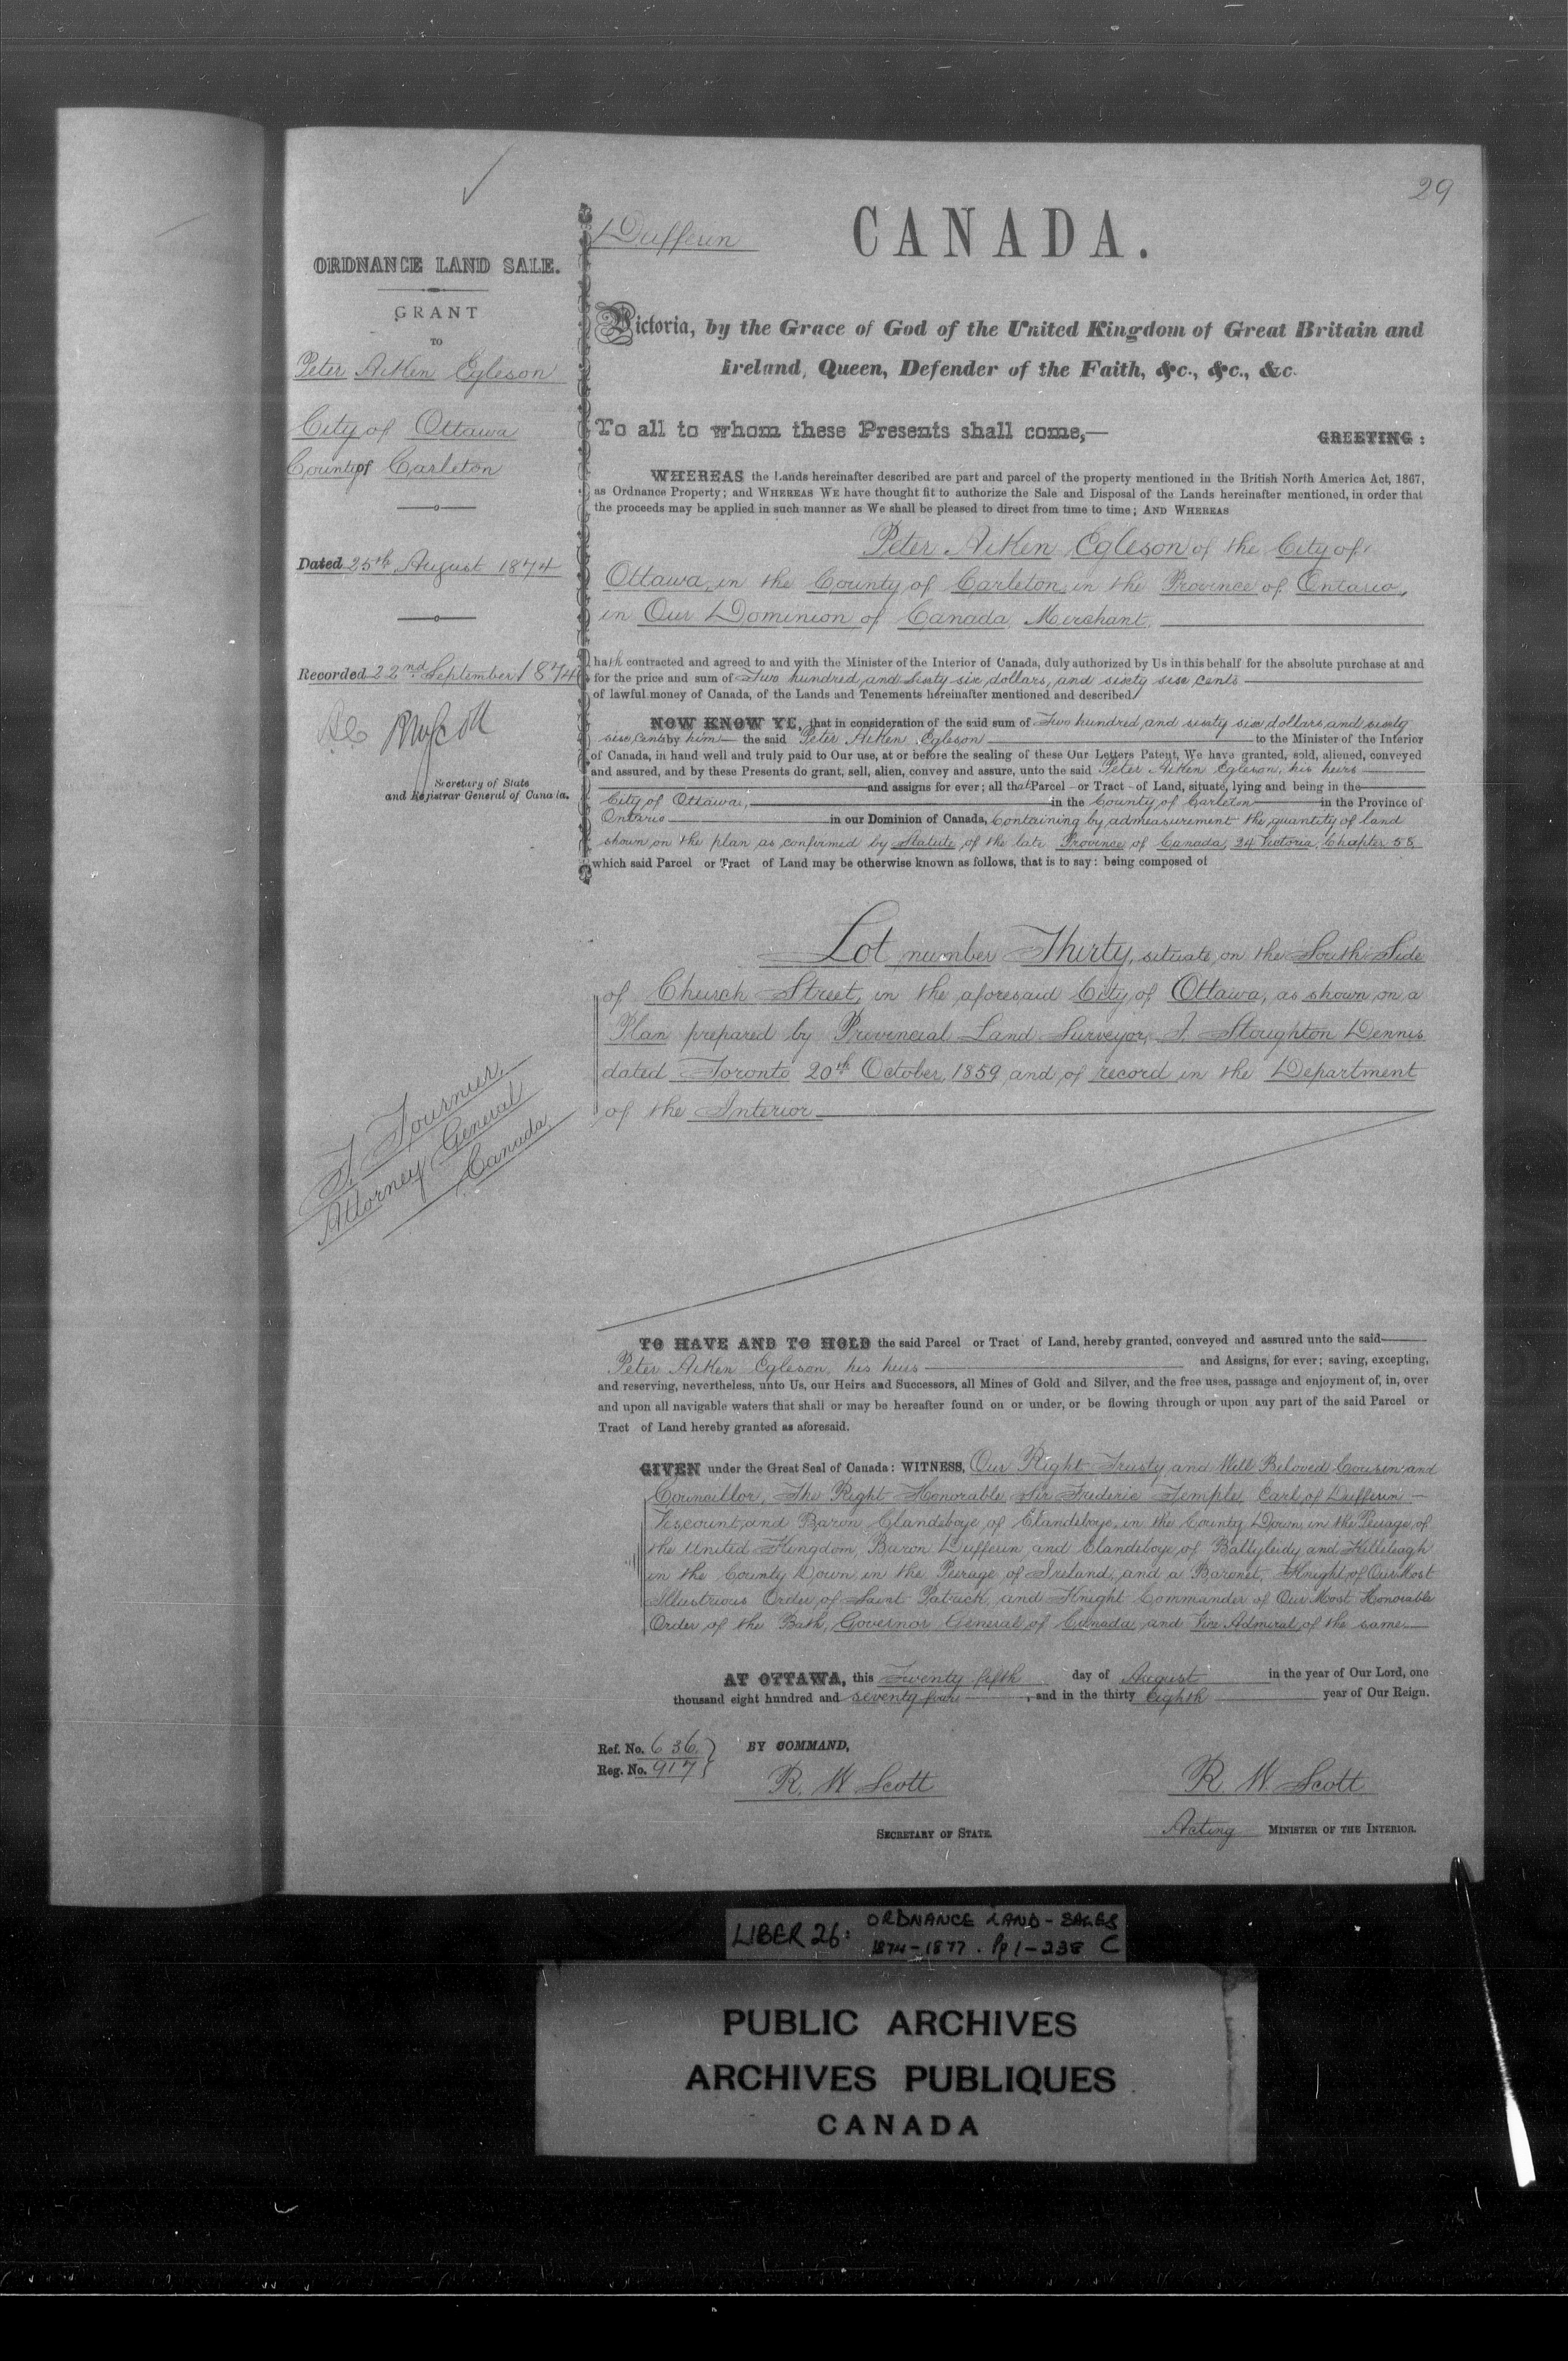 29
Dufferin
CANADA.
ORDNANCE LAND SALE.
GRANT
TO
Peter Aitken Egleson
City of Ottawa
County of Carleton
Dated 25th August 1874
Recorded 22nd September 1874
Secretary of State
and Registrar General of Canada.
T. Fournier,
Attorney General
Canada.
Victoria, by the Grace of God of the United Kingdom of Great Britain and
Ireland, Queen, Defender of the Faith, &c., &c., &c.
To all to whom these Presents shall come,—
GREETING:
WHEREAS the Lands hereinafter described are part and parcel of the property mentioned in the British North America Act, 1867,
as Ordnance Property; and WHEREAS WE have thought fit to authorize the Sale and Disposal of the Lands hereinafter mentioned, in order that
the proceeds may be applied in such manner as We shall be pleased to direct from time to time; AND WHEREAS
Peter Aitken Egleson of the City of
Ottawa, in the County of Carleton, in the Province of Ontario,
in Our Dominion of Canada, Merchant,
hath contracted and agreed to and with the Minister of the Interior of Canada, duly authorized by Us in this behalf for the absolute purchase at and
for the price and sum of Two hundred and sixty six dollars, and sixty six cents
of lawful money of Canada, of the Lands and Tenements hereinafter mentioned and described
NOW KNOW YE, that in consideration of the said sum of Two hundred and sixty six dollars and sixty
six cents by him the said Peter Aitken Egleson to the Minister of the Interior
of Canada, in hand well and truly paid to Our use, at or before the sealing of these Our Letters Patent, We have granted, sold, aliened, conveyed
and assured, and by these Presents do grant, sell, alien, convey and assure, unto the said Peter Aitken Egleson, his heirs
and assigns for ever; all that Parcel or Tract of Land, situate, lying and being in the
City of Ottawa, in the County of Carleton in the Province of
Ontario in our Dominion of Canada, Containing by admeasurement the quantity of land
shown on the plan as confirmed by Statute of the late Province of Canada, 24 Victoria, Chapter 55
which said Parcel or Tract of Land may be otherwise known as follows, that is to say: being composed of
Lot number Thirty, situate on the South Side
of Church Street, in the aforesaid City of Ottawa, as shown on a
Plan prepared by Provincial Land Surveyor, J. Stoughton Dennis
dated Toronto 20th October, 1859 and of record in the Department
of the Interior
TO HAVE AND TO HOLD the said Parcel or Tract of Land, hereby granted, conveyed and assured unto the said
Peter Aitken Egleson, his heirs and Assigns, for ever; saving, excepting,
and reserving, nevertheless, unto Us, our Heirs and Successors, all Mines of Gold and Silver, and the free uses, passage and enjoyment of, in, over
and upon all navigable waters that shall or may be hereafter found on or under, or be flowing through or upon any part of the said Parcel or
Tract of Land hereby granted as aforesaid.
GIVEN under the Great Seal of Canada: WITNESS, Our Right Trusty and Well Beloved Cousin and
Councillor, The Right Honorable Sir Frederic Temple, Earl of Dufferin
Viscount and Baron Clandeboye of Clandeboye, in the County Down in the Peerage of
the United Kingdom, Baron Dufferin and Clandeboye of Ballyleidy and Killeleagh
in the County Down in the Peerage of Ireland, and a Baronet, Knight of Our Most
Illustrious Order of Saint Patrick, and Knight Commander of Our Most Honorable
Order of the Bath, Governor General of Canada, and Vice Admiral of the same
AT OTTAWA, this Twenty fifth day of August in the year of Our Lord, one
thousand eight hundred and seventy four, and in the thirty eighth year of Our Reign.
Ref. No. 636
Reg. No. 917
BY COMMAND,
R. W. Scott
SECRETARY OF STATE.
R. W. Scott
Acting MINISTER OF THE INTERIOR.
LIBER 26: ORDNANCE LAND-SALES
1874-1877. Pp 1-238 C
PUBLIC ARCHIVES
ARCHIVES PUBLIQUES
CANADA